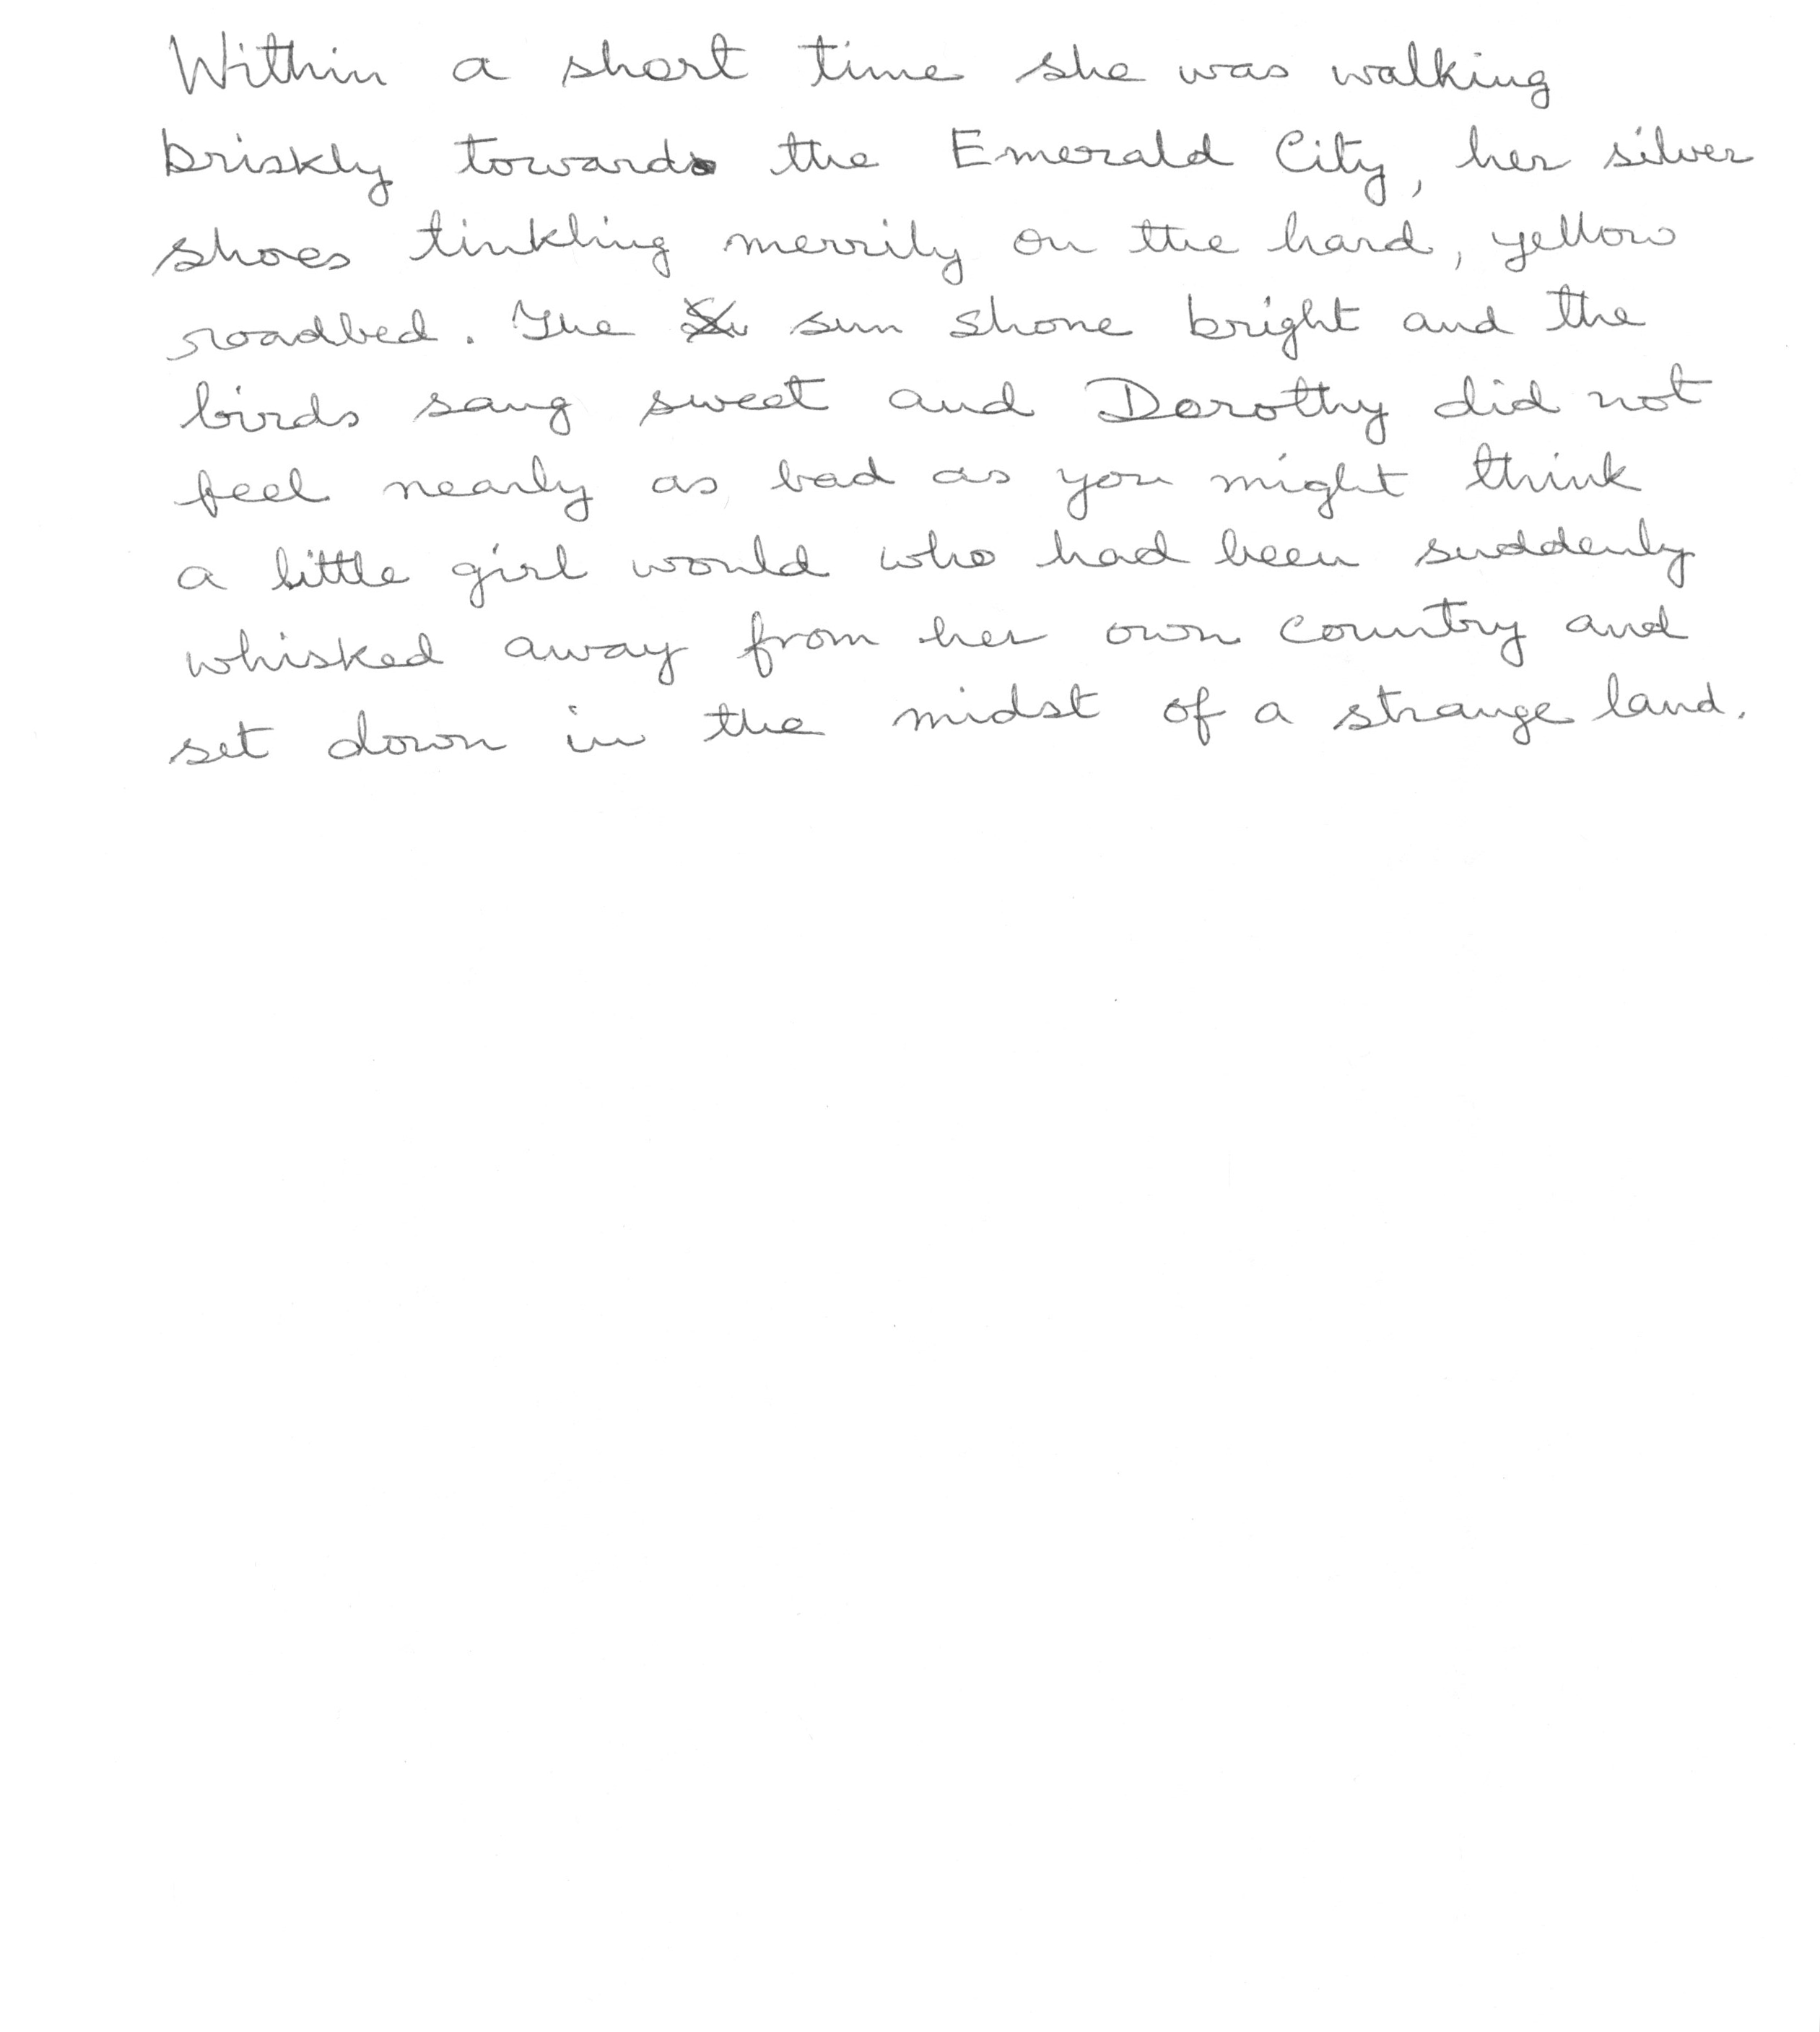 Within a short time she was walking
briskly towards the Emerald City, her silver
shoes tinkling merrily on the hard, yellow
roadbed. The sun shone bright and the
birds sang sweet and Dorothy did not
feel nearly as bad as you might think
a little girl would who had been suddenly
whisked away from her own country and
set down in the midst of a strange land.